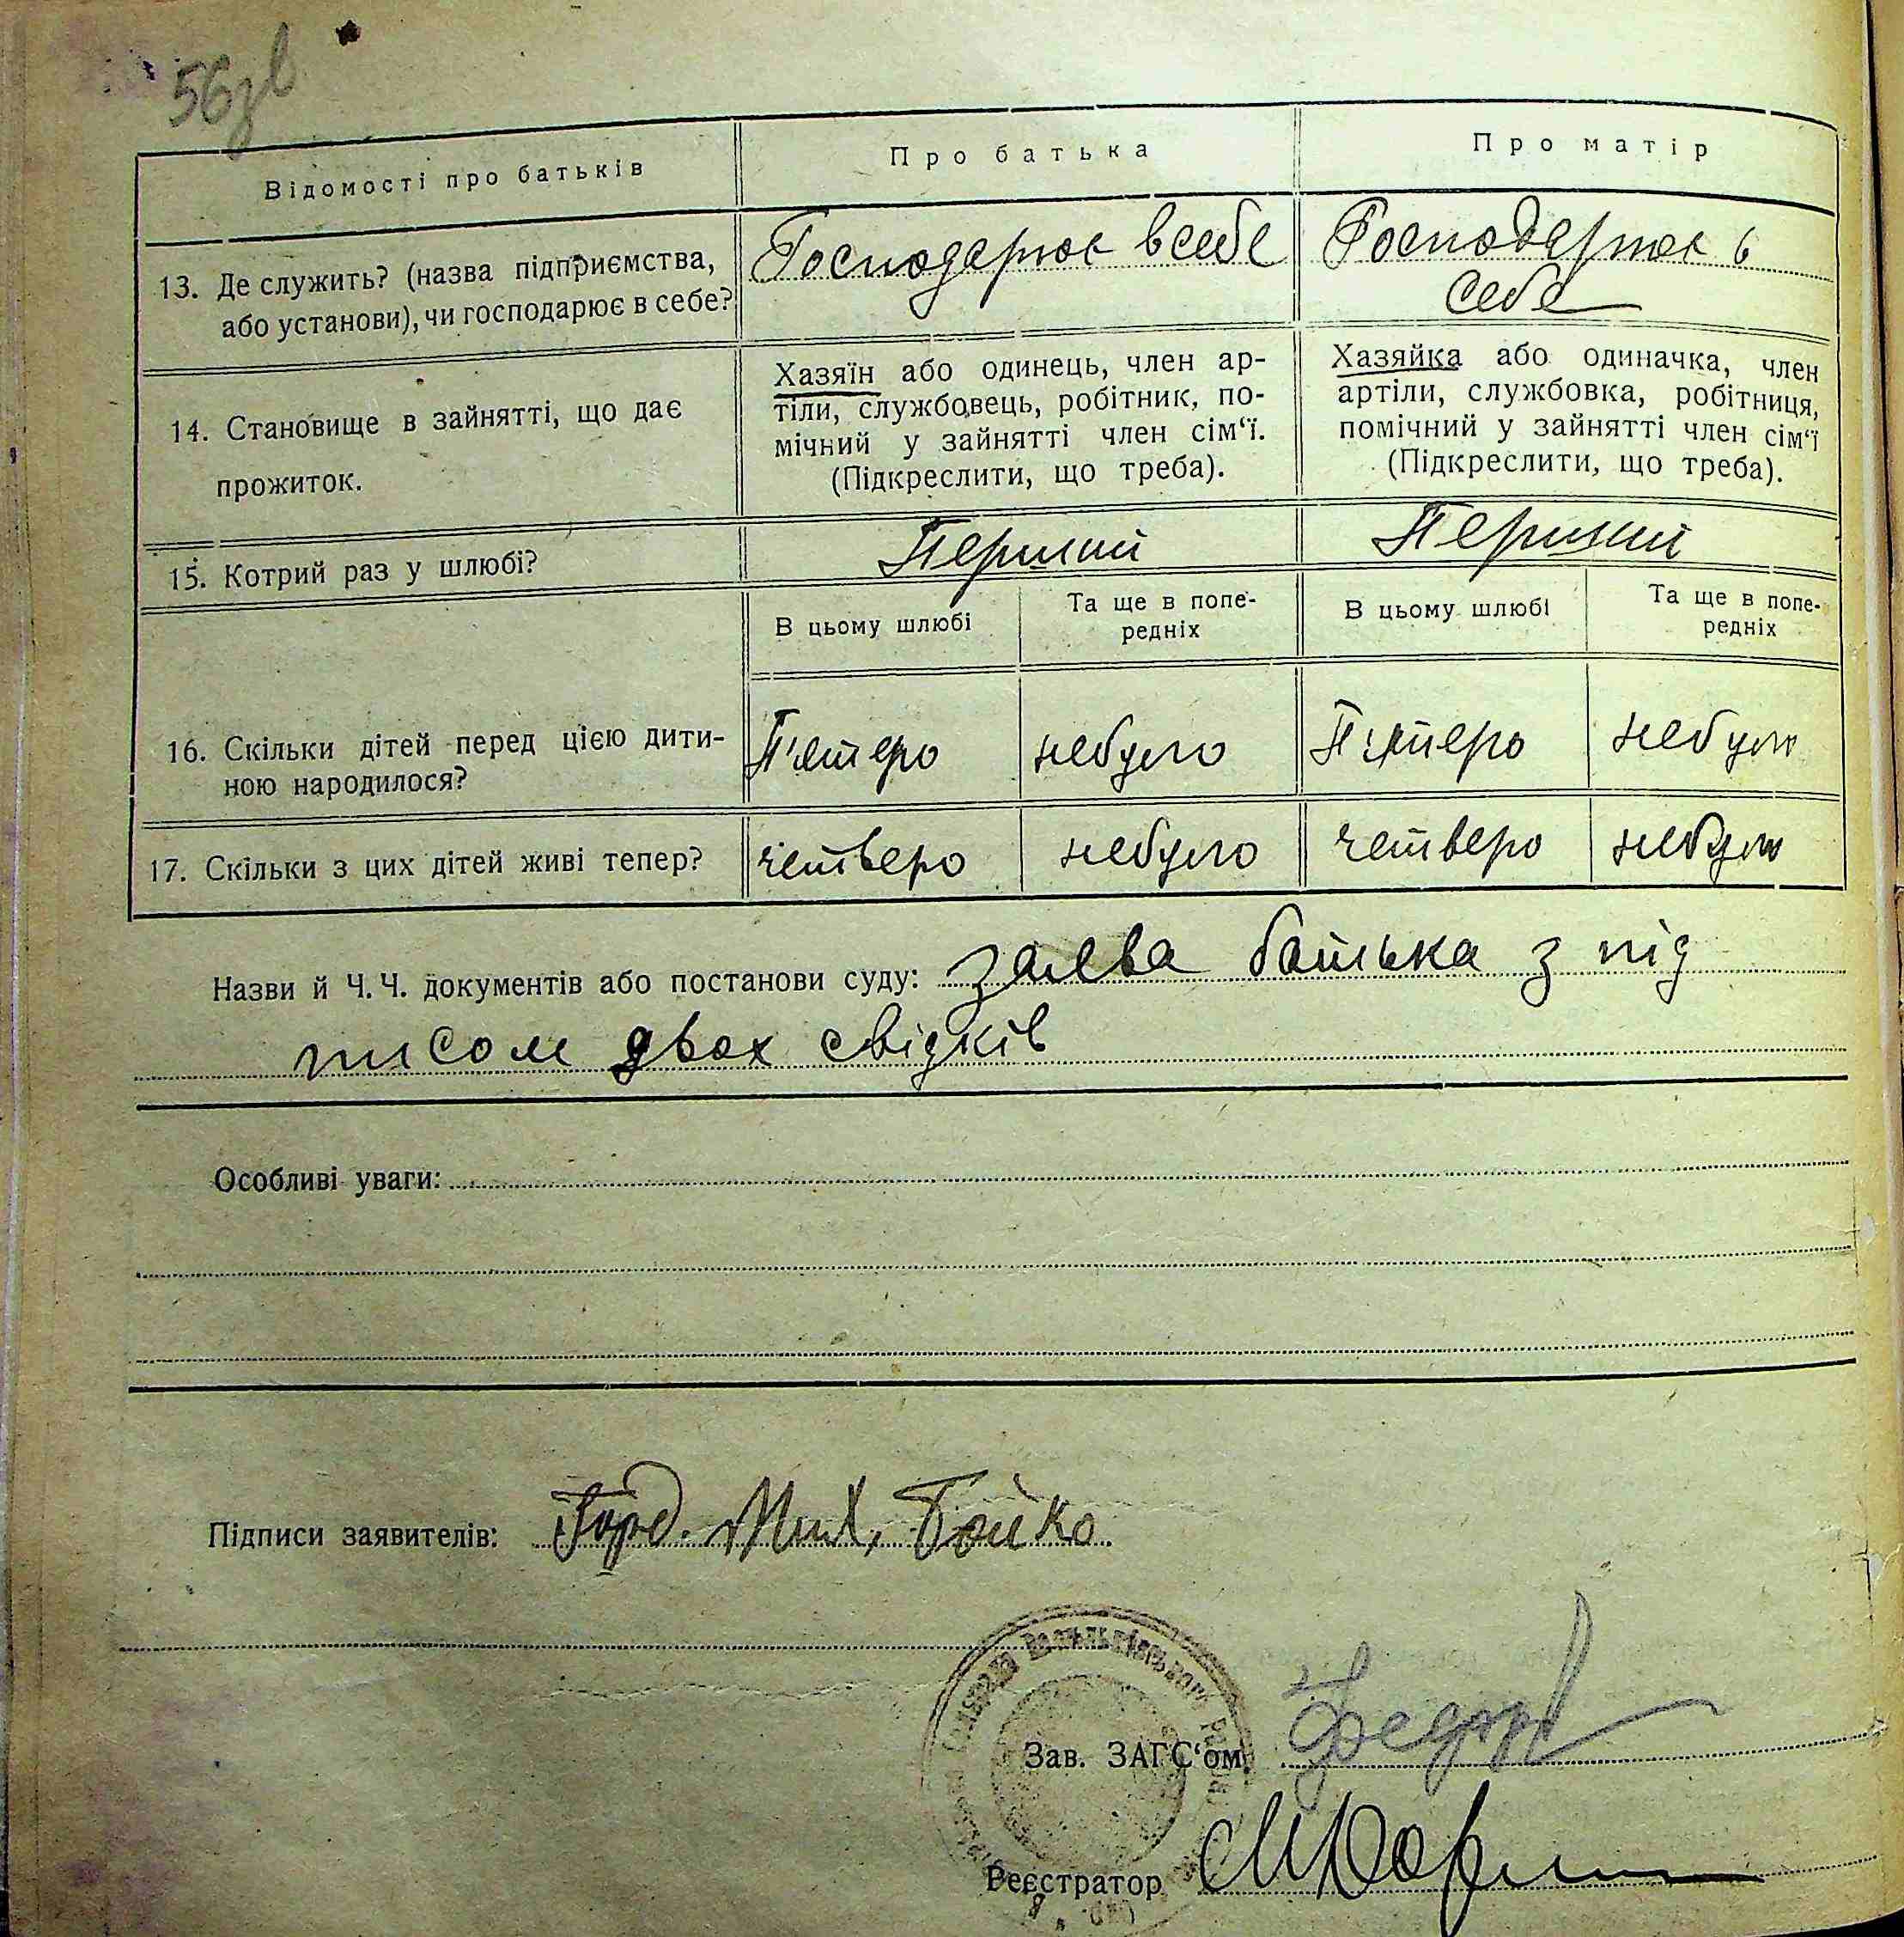 56зв
Відомості про батьків
Про батька
Про матір
13. Де служить? (назва підприємства,
або установи), чи господарює в себе?
Господарює в себе
Господарює в
себе
14. Становище в зайнятті, що дає
прожиток.
Хазяїн або одинець, член ар-
тіли, службовець, робітник, по-
мічний у зайнятті член сім‘ї.
(Підкреслити, що треба).
Хазяйка або одиначка, член
артіли, службовка, робітниця,
помічний у зайнятті член сім‘ї
(Підкреслити, що треба).
15. Котрий раз у шлюбі?
Перший
Перший
В цьому шлюбі
Та ще в попе-
редніх
В цьому шлюбі
Та ще в попе-
редніх
16. Скільки дітей перед цією дити-
ною народилося?
П'ятеро
небуло
П'ятеро
небуло
17. Скільки з цих дітей живі тепер?
четверо
небуло
четверо
небуло
Назви й Ч. Ч. документів або постанови суду: заява батька з під
писом двох свідків
Особливі уваги:
Підписи заявителів: Горд. Мих, Бойко.
Зав. ЗАГС‘ом
Реєстратор